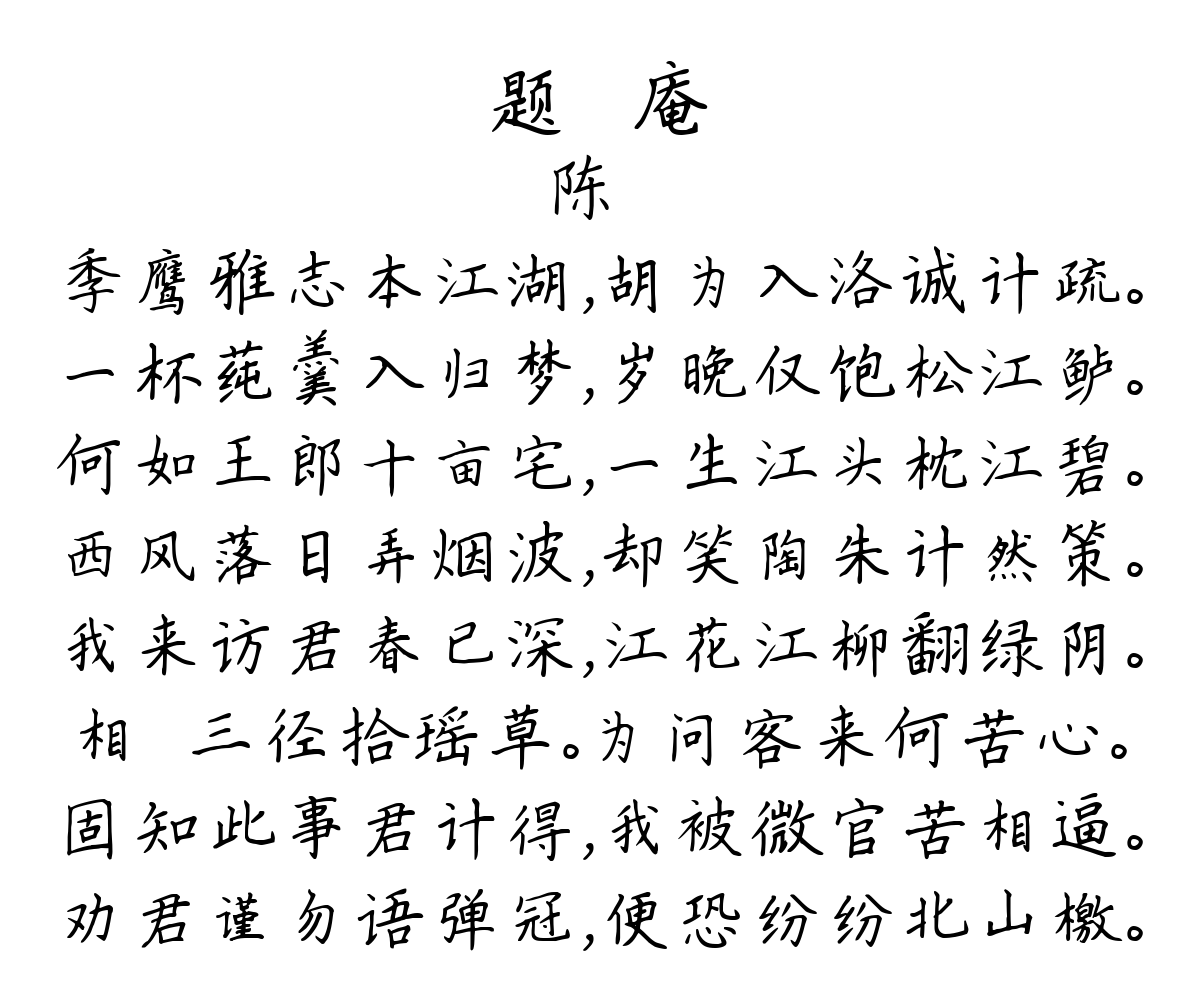 题 庵
陈
季鹰雅志本江湖,胡为入洛诚计疏。
一杯莼羹入归梦,岁晚仅饱松江鲈。
何如王郎十亩宅,一生江头枕江碧。
西风落日弄烟波,却笑陶朱计然策。
我来访君春已深,江花江柳翻绿阴。
相 三径拾瑶草。为问客来何苦心。
固知此事君计得,我被微官苦相逼。
劝君谨勿语弹冠,便恐纷纷北山檄。